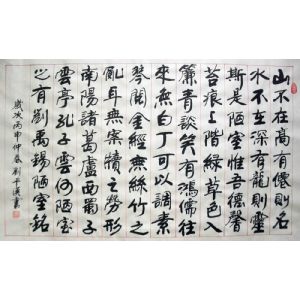 山不在高有僊則名
水不在深有龍則靈
斯是陋室惟吾德馨
苔痕上階綠草色入
簾青談笑有鴻儒往
來無白丁可以調素
琴閱金經無絲竹之
亂耳無案牘之勞形
南陽諸葛廬西蜀子
雲亭孔子雲何陋室
之有劉禹錫陋室銘
歲次丙申仲春劉平書